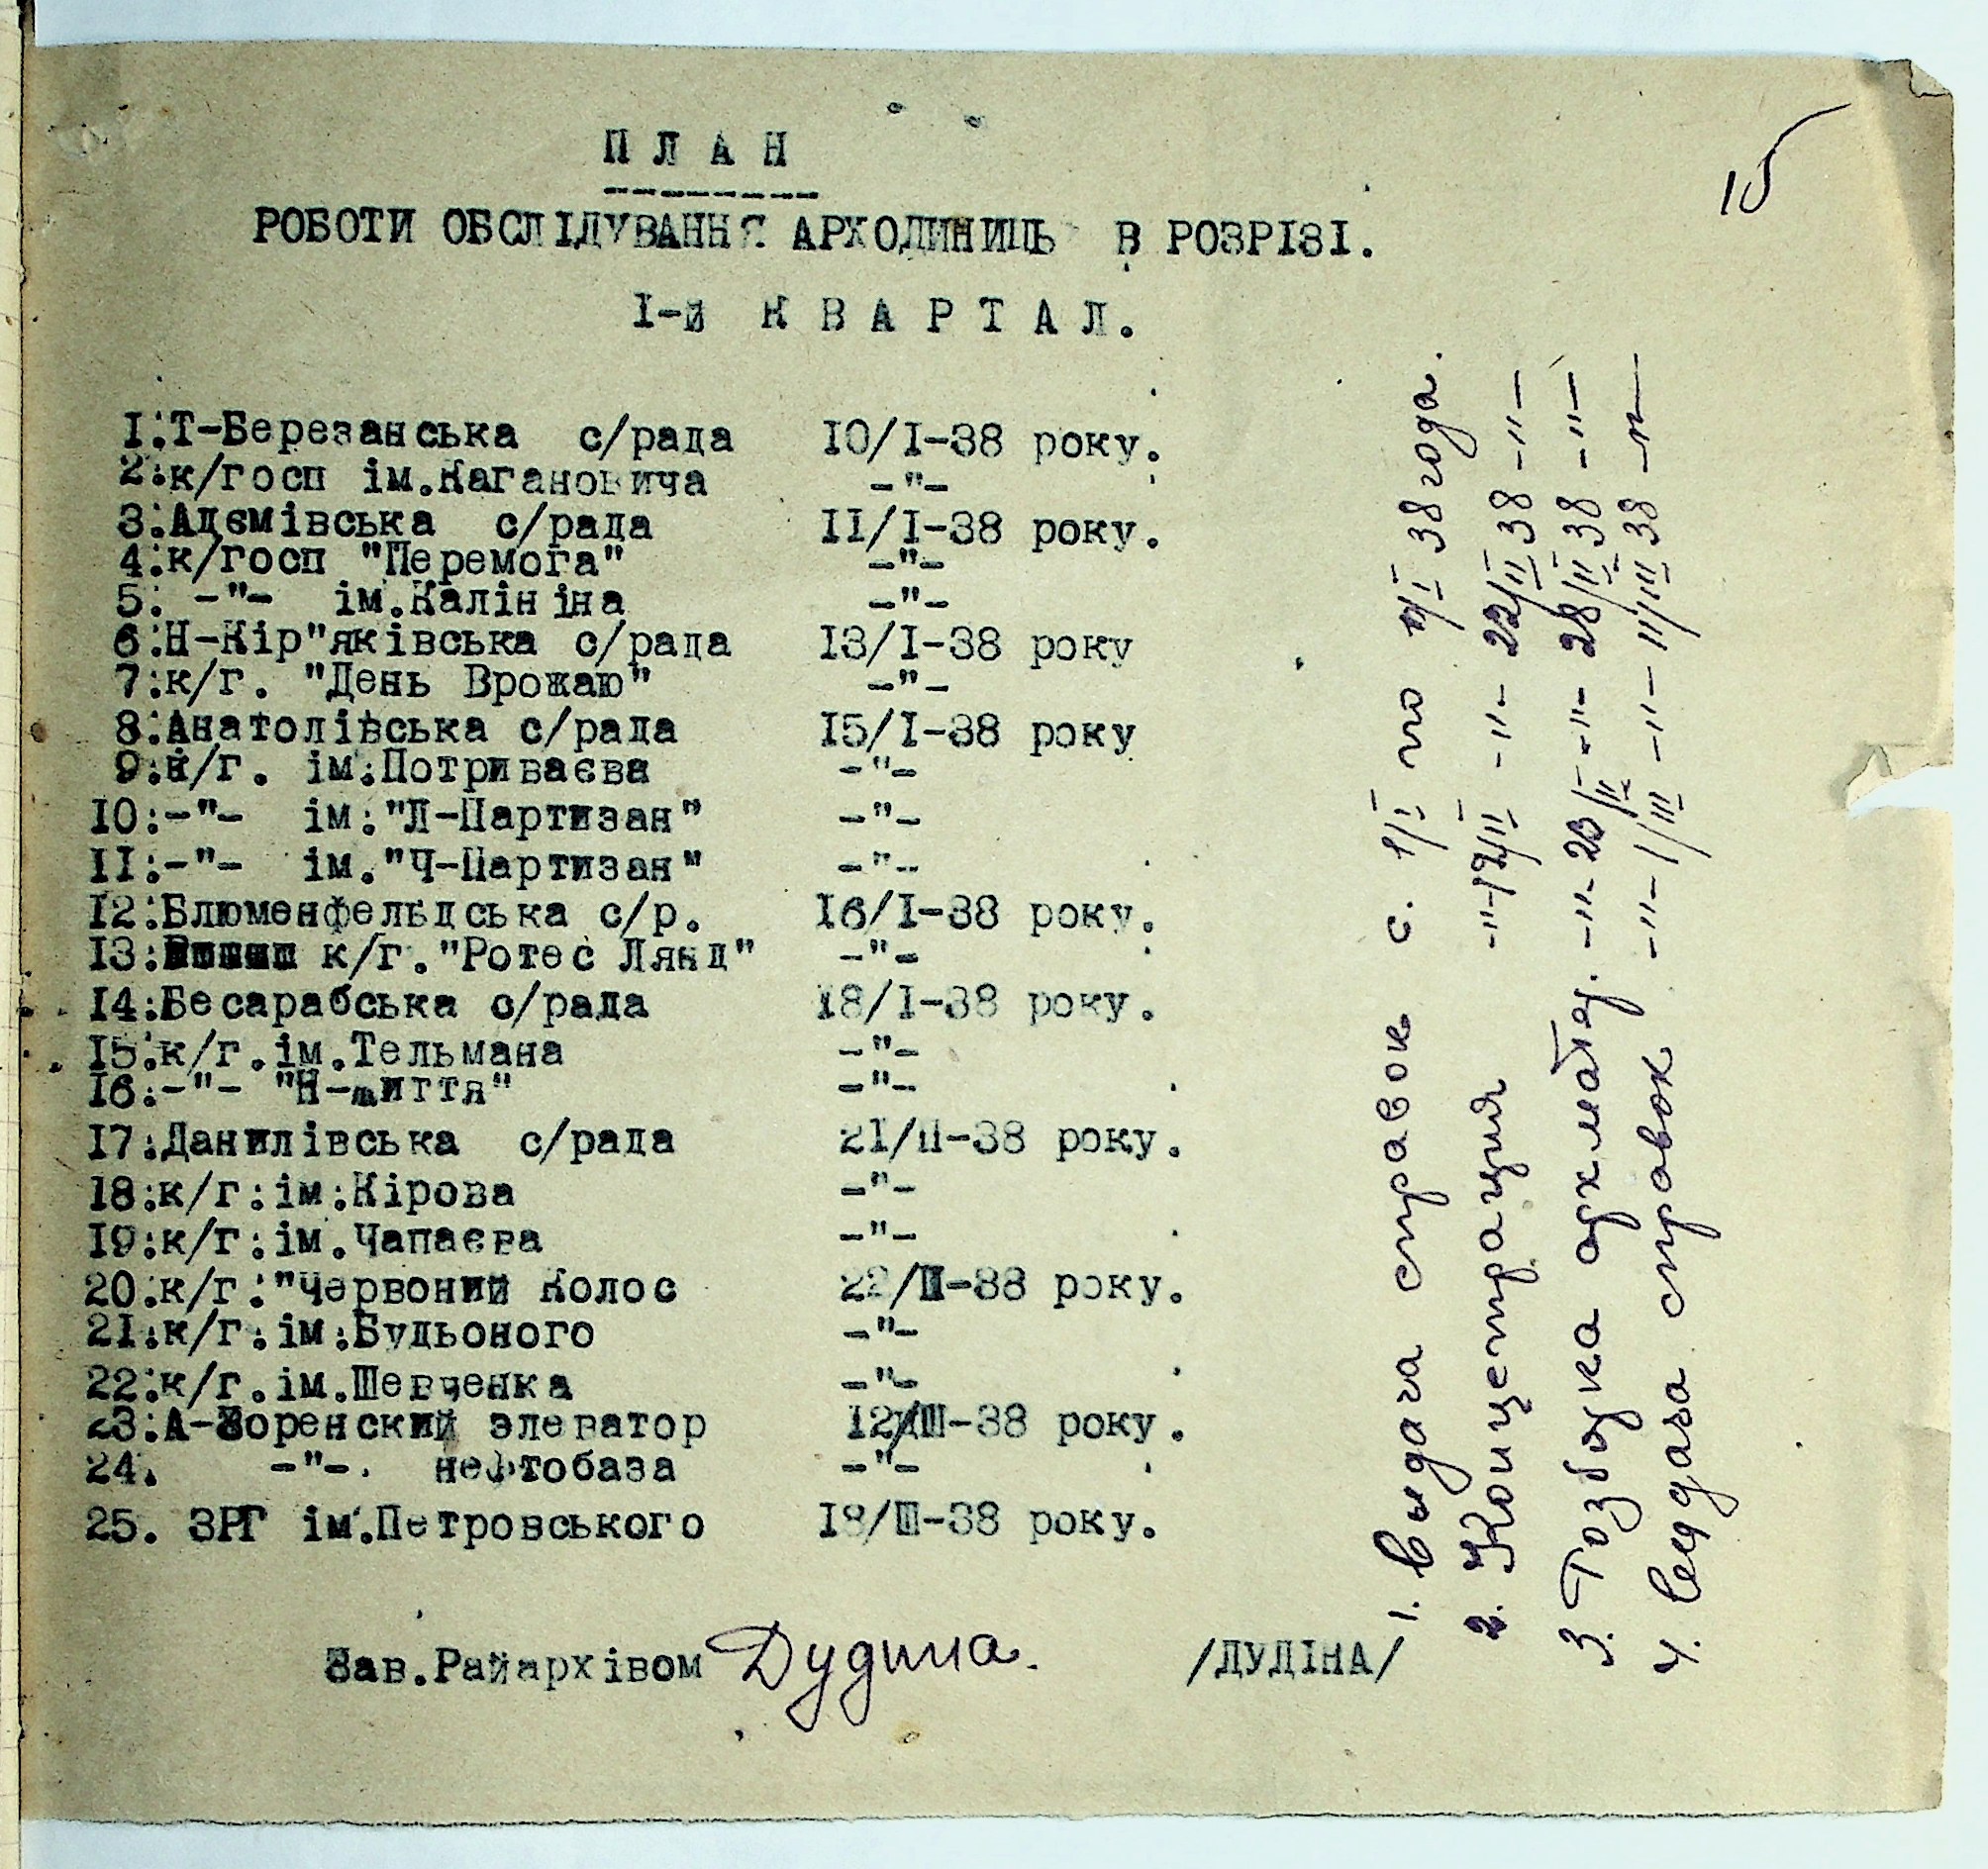 15
П Л А Н
РОБОТИ ОБСЛІДУВАННЯ АРХОДИНИЦЬ В РОЗРІЗІ.
І-й К В А Р Т А Л.
І.Т-Березанська с/рада 10/І-38 року.
2.к/госп ім.Кагановича -"-
3.Адємівська с/рада ІІ/І-38 року.
4.к/госп "Перемога" -"-
5. -"- ім.Калініна -"-
6.Н-Кір"яківська с/рада ІЗ/І-38 року
7.к/г. "День Врожаю" -"-
8.Анатолівська с/рада І5/І-38 року
9.к/г. ім.Потриваєва -"-
10.-"- ім."Л-Партизан" -"-
ІІ.-"- ім."Ч-Партизан" -"-
І2.Блюменфельдська с/р. І6/І-38 року.
ІЗ. к/г."Ротес Лянд" -"-
І4.Бесарабська с/рада 18/І-38 року.
І5.к/г.ім.Тельмана -"-
І6.-"- "Н-життя" -"-
І7.Данилівська с/рада 2І/ІІ-38 року.
18.к/г.ім.Кірова -"-
І9.к/г.ім.Чапаєва -"-
20.к/г."Червоний Колос 22/ІІ-38 року.
2І.к/г.ім.Будьоного -"-
22.к/г.ім.Шевченка -"-
23.А-Зоренский элеватор І2/ІІІ-38 року.
24. -"-. нефтобаза -"-
25. ЗРГ ім.Петровського І8/ІІІ-38 року.
Зав.Райархівом Дудина. /ДУДІНА/
1. Выдача справок с. 1/I по 38 года.
2. Концетрация -"- 12/II -"- 22/II 38 -"-
3. архматер. -"- 23/II -"- 28/II 38 -"-
4. Выдача справок -"- 1/III -"- 11/III 38 -"-